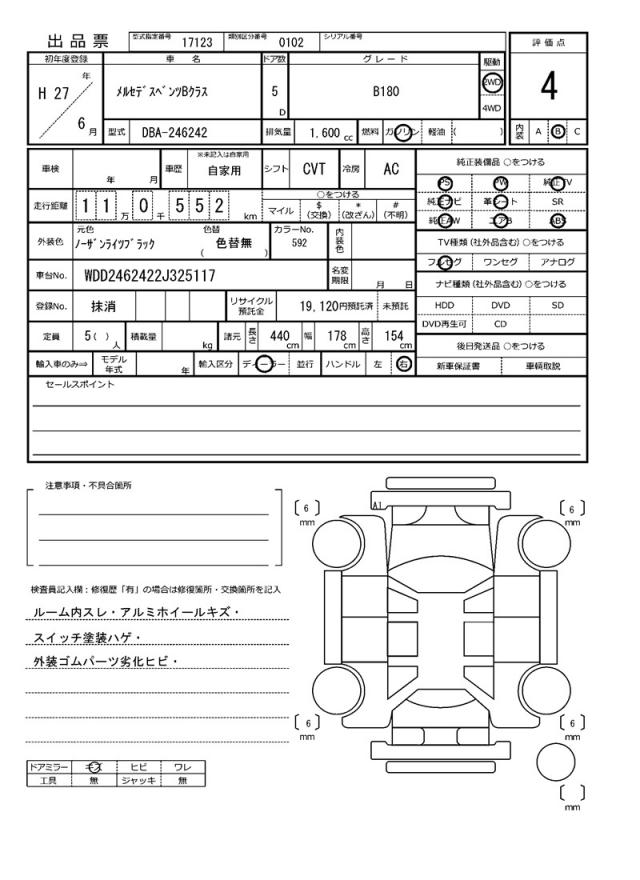 出品票
型式指定番号 17123 類別区分番号 0102 シリアル番号
評価点
4
初年度登録 車名 ドア数 グレード 駆動
H 27 年 6 月
ﾒﾙｾﾃﾞｽﾍﾞﾝﾂBクラス 5 D B180 2WD
4WD
型式 DBA-246242 排気量 1,600 cc 燃料 ガソリン 軽油 ( )
内装 A B C
車検 年 月 車歴 ※未記入は自家用 自家用 シフト CVT 冷房 AC
純正装備品 ○をつける
PS PW 純正TV
純正ナビ 革シート SR
純正AW エアB ABS
走行距離 1 1 万 0 千 5 5 2 km
○をつける
マイル $(交換) *(改ざん) #(不明)
TV種類(社外品含む)○をつける
フルセグ ワンセグ アナログ
外装色 元色 ﾉｰｻﾞﾝﾗｲﾂﾌﾞﾗｯｸ 色替 ( 色替無 ) カラーNo. 592 内装色
車台No. WDD2462422J325117 名変期限 月 日
ナビ種類(社外品含む)○をつける
HDD DVD SD
DVD再生可 CD
登録No. 抹消 リサイクル預託金 19,120円預託済 未預託
定員 5( ) 人 積載量 kg 諸元 長さ 440 cm 幅 178 cm 高さ 154 cm
後日発送品 ○をつける
新車保証書 車輌取説
輸入車のみ⇒ モデル年式 年 輸入区分 ディーラー 並行 ハンドル 左 右
セールスポイント
注意事項・不具合箇所
検査員記入欄：修復歴「有」の場合は修復箇所・交換箇所を記入
ルーム内スレ・アルミホイールキズ・
スイッチ塗装ハゲ・
外装ゴムパーツ劣化ヒビ・
ドアミラー キズ ヒビ ワレ
工具 無 ジャッキ 無
A1
〔 6 〕 mm
〔 6 〕 mm
〔 6 〕 mm
〔 6 〕 mm
〔 〕 mm